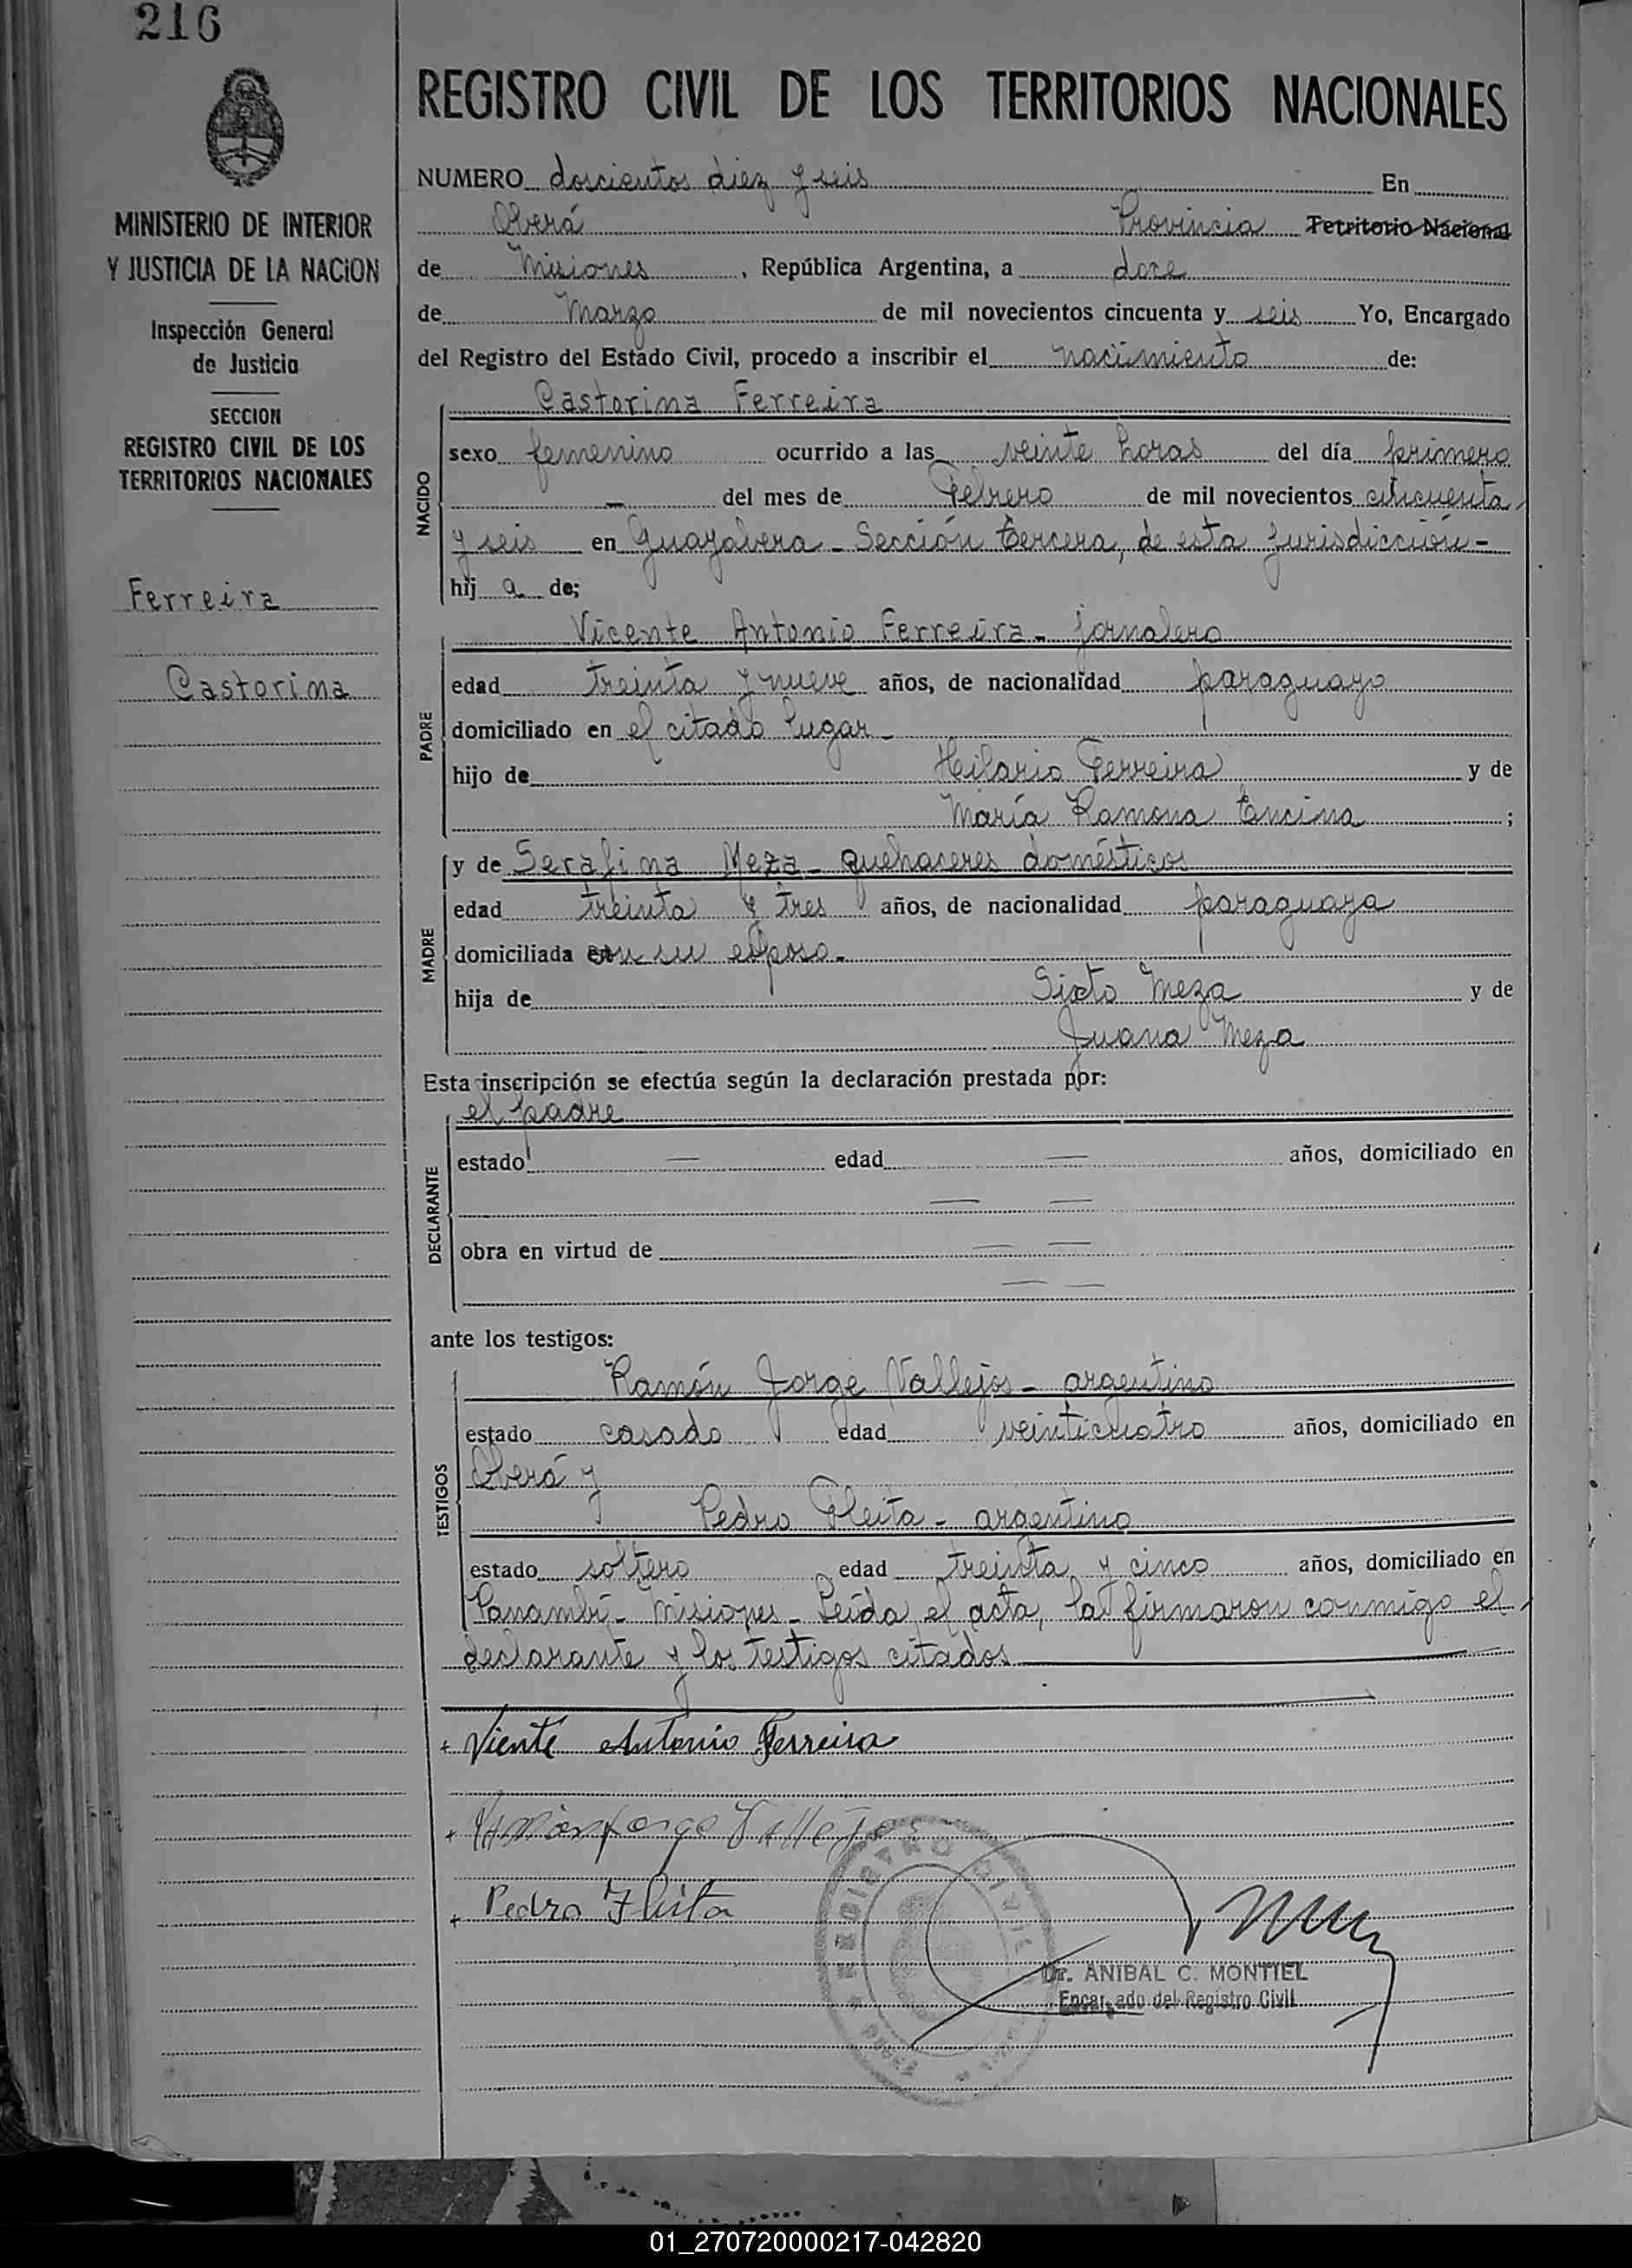 216
MINISTERIO DE INTERIOR
Y JUSTICIA DE LA NACION
Inspección General
de Justicia
SECCION
REGISTRO CIVIL DE LOS
TERRITORIOS NACIONALES
Ferreira
Castorina
REGISTRO CIVIL DE LOS TERRITORIOS NACIONALES
NUMERO doscientos diez y seis En
Oberá Provincia Territorio Nacional
de Misiones, República Argentina, a doce
de Marzo de mil novecientos cincuenta y seis Yo, Encargado
del Registro del Estado Civil, procedo a inscribir el nacimiento de:
NACIDO
Castorina Ferreira
sexo femenino ocurrido a las veinte horas del día primero
— del mes de Febrero de mil novecientos cincuenta
y seis en Guayabera - Sección tercera, de esta jurisdicción -
hij a de;
PADRE
Vicente Antonio Ferreira - jornalero
edad treinta y nueve años, de nacionalidad paraguayo
domiciliado en el citado lugar -
hijo de Hilario Ferreira y de
María Ramona Encina ;
MADRE
y de Serafina Meza - quehaceres domésticos
edad treinta y tres años, de nacionalidad paraguaya
domiciliada con su esposo -
hija de Sixto Meza y de
Juana Meza
Esta inscripción se efectúa según la declaración prestada por:
DECLARANTE
el padre
estado — edad — años, domiciliado en
— —
obra en virtud de — —
— —
ante los testigos:
TESTIGOS
Ramón Jorge Vallejos - argentino
estado casado edad veinticuatro años, domiciliado en
Oberá y
Pedro Fleita - argentino
estado soltero edad treinta y cinco años, domiciliado en
Panambí - Misiones - Leída el acta, la firmaron conmigo el
declarante y los testigos citados
+ Viente Antonio Ferreira
+ Ramón Jorge Vallejos
+ Pedro Fleita
REGISTRO CIVIL
Dr. ANIBAL C. MONTIEL
Encargado del Registro Civil
01_270720000217-042820